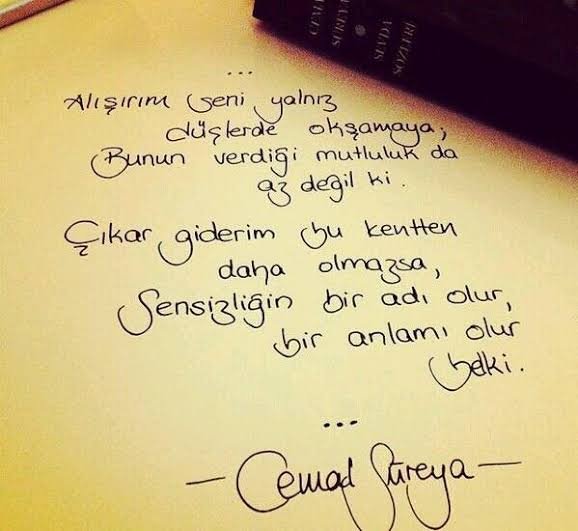 CEMAL
SÜREYA
SEVDA
SÖZLERİ
...
Alışırım seni yalnız
düşlerde okşamaya;
Bunun verdiği mutluluk da
az değil ki.
Çıkar giderim bu kentten
daha olmazsa,
Sensizliğin bir adı olur,
bir anlamı olur
belki.
...
- Cemal Süreya -